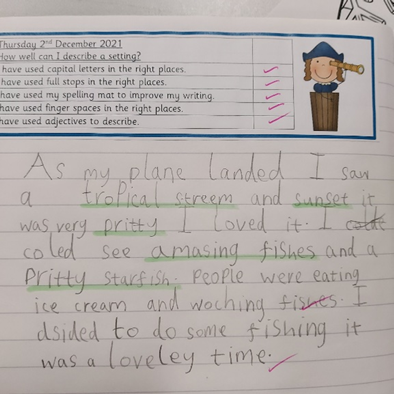 Thursday 2nd December 2021
How well can I describe a setting?
have used capital letters in the right places.
have used full stops in the right places.
have used my spelling mat to improve my writing.
have used finger spaces in the right places.
have used adjectives to describe.
As my plane landed I saw
a tropical streem and sunset it
was very pritty I loved it. I
coled see amasing fishes and a
Pritty starfish. People were eating
ice cream and woching fishes. I
dsided to do some fishing it
was a loveley time.